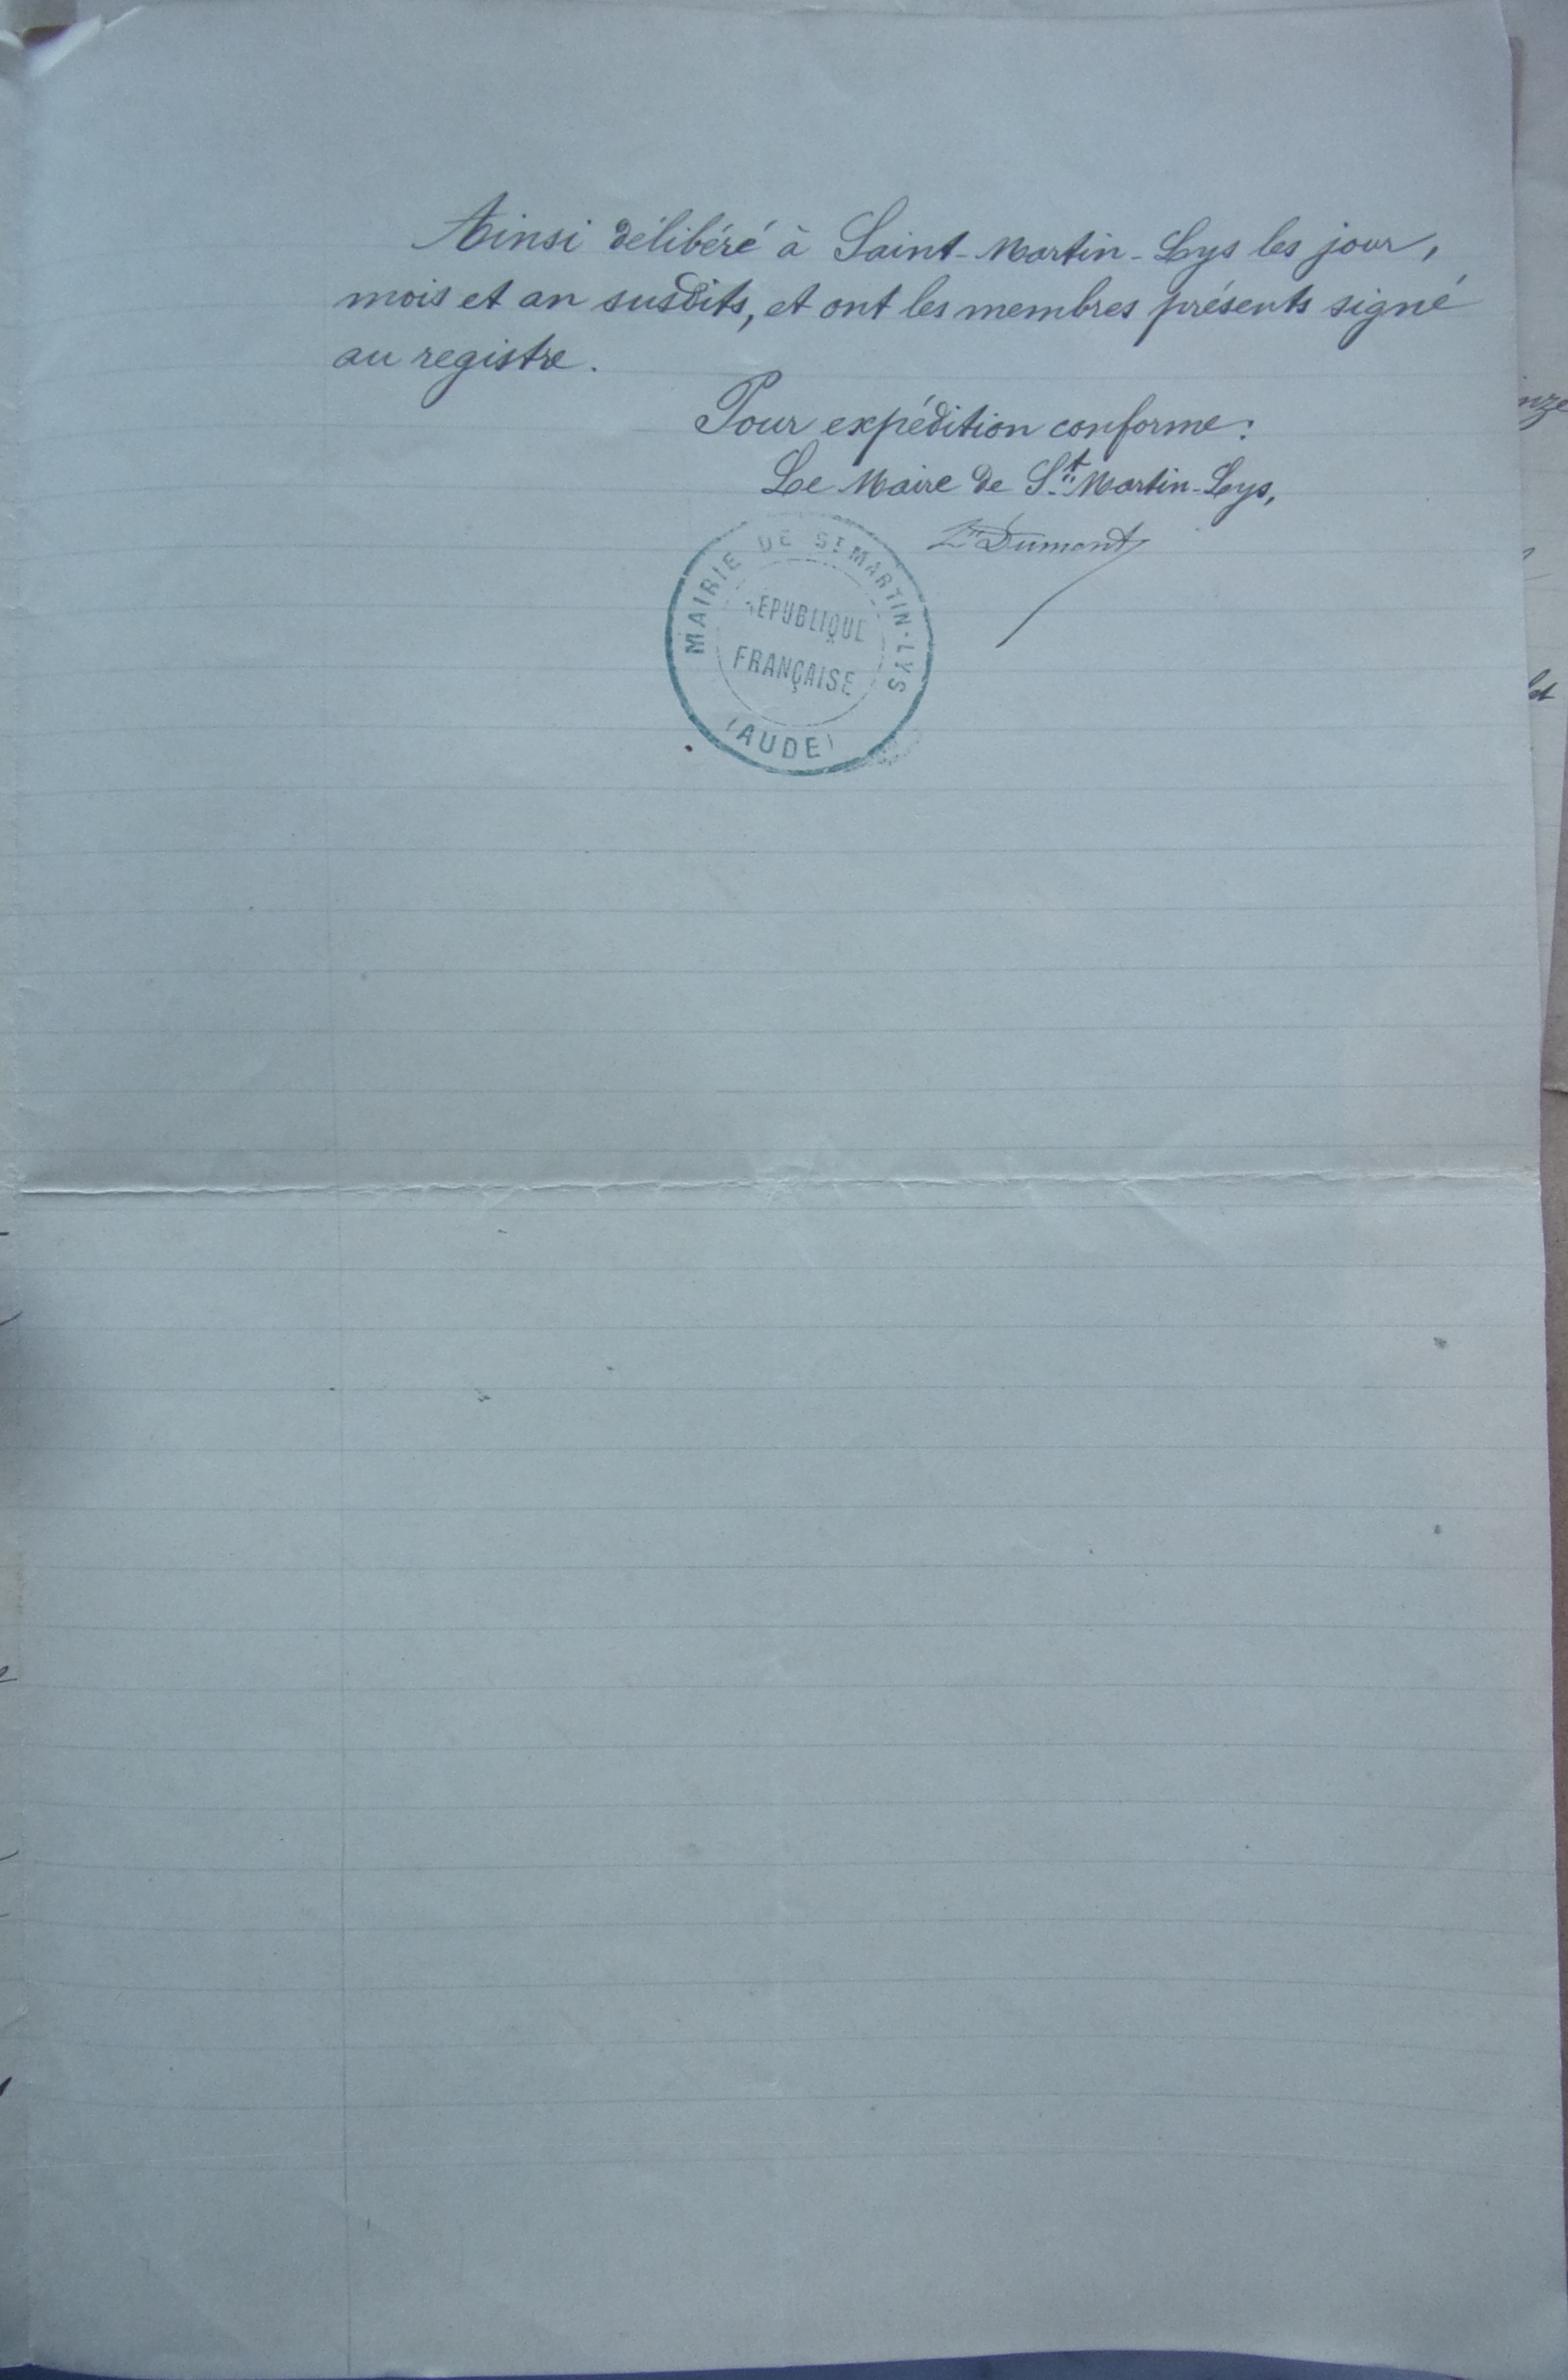 Ainsi délibéré à Saint-Martin-Lys les jour,
mois et an susdits, et ont les membres présents signé
au registre.
Pour expédition conforme:
Le Maire de St Martin-Lys,
Dumont
MAIRIE DE ST MARTIN-LYS
RÉPUBLIQUE
FRANÇAISE
(AUDE)